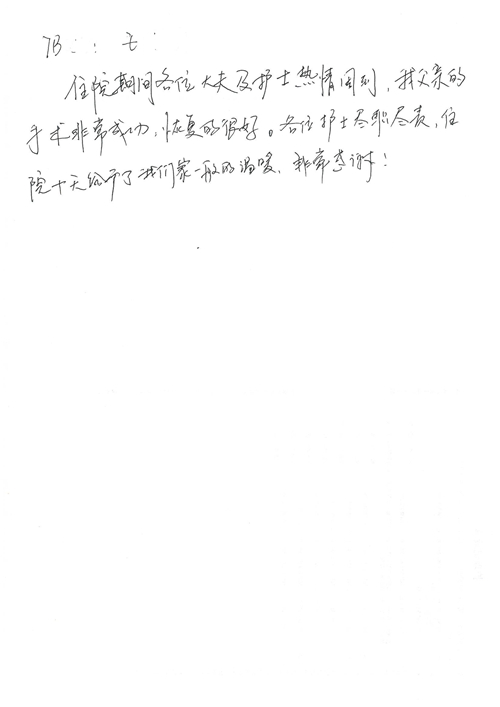 7B：：七：
住院期间各位大夫及护士热情周到，我父亲的
手术非常成功，恢复的很好。各位护士尽职尽责，住
院十天给予了我们家一般的温暖，非常感谢！